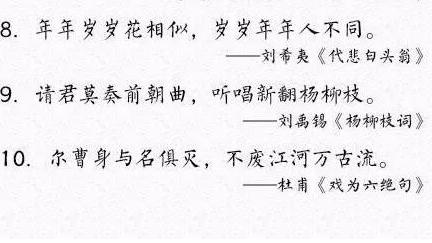 8. 年年岁岁花相似，岁岁年年人不同。
——刘希夷《代悲白头翁》
9. 请君莫奏前朝曲，听唱新翻杨柳枝。
——刘禹锡《杨柳枝词》
10. 尔曹身与名俱灭，不废江河万古流。
——杜甫《戏为六绝句》